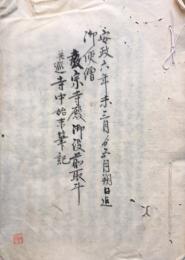 安政六年未三月ゟ五月朔日迄
御使僧
教宗寺殿御役前取斗
并寺中始末筆記